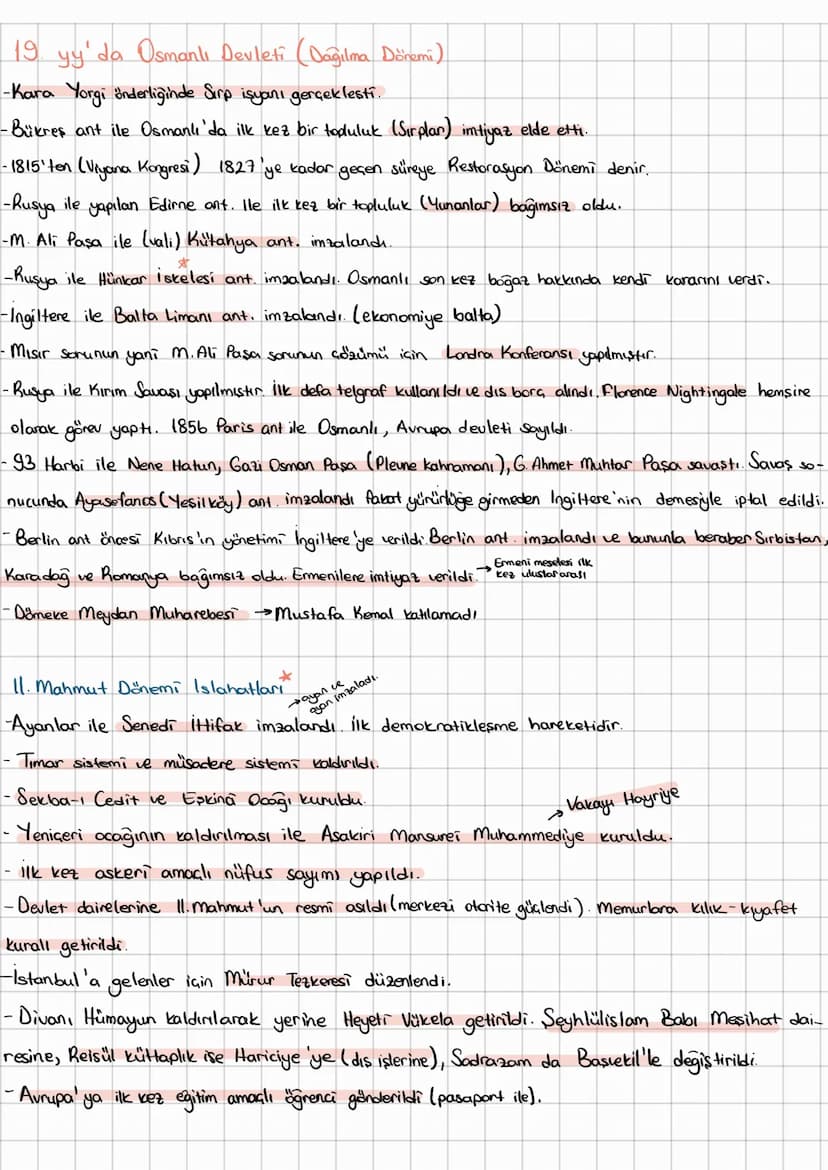 19. yy'da Osmanlı Devleti (Dağılma Dönemi)
-Kara Yorgi önderliğinde Sırp isyanı gerçekleşti.
-Bükreş ant ile Osmanlı'da ilk kez bir topluluk (Sırplar) imtiyaz elde etti.
-1815'ten (Viyana Kongresi) 1827'ye kadar geçen süreye Restorasyon Dönemi denir.
-Rusya ile yapılan Edirne ant. ile ilk kez bir topluluk (Yunanlar) bağımsız oldu.
-M. Ali Paşa ile (vali) Kütahya ant. imzalandı.
*
-Rusya ile Hünkar İskelesi ant. imzalandı. Osmanlı son kez boğaz hakkında kendi kararını verdi.
-İngiltere ile Balta Limanı ant. imzalandı. (ekonomiye balta)
- Mısır sorunun yani M.Ali Paşa sorunun çözümü için Londra Konferansı yapılmıştır.
- Rusya ile Kırım Savaşı yapılmıştır. İlk defa telgraf kullanıldı ve dış borç alındı. Florence Nightingale hemşire
olarak görev yaptı. 1856 Paris ant ile Osmanlı, Avrupa devleti sayıldı.
- 93 Harbi ile Nene Hatun, Gazi Osman Paşa (Plevne kahramanı), G. Ahmet Muhtar Paşa savaştı. Savaş so-
nucunda Ayasefanos (Yeşilköy) ant. imzalandı fakat yürürlüğe girmeden İngiltere'nin demesiyle iptal edildi.
- Berlin ant öncesi Kıbrıs'ın yönetimi İngiltere'ye verildi. Berlin ant. imzalandı ve bununla beraber Sırbistan,
Karadağ ve Romanya bağımsız oldu. Ermenilere imtiyaz verildi. → Ermeni meselesi ilk
kez uluslararası
- Dömeke Meydan Muharebesi → Mustafa Kemal katılamadı
II. Mahmut Dönemi Islahatları *
→ ayan ve
ayan imzaladı.
-Ayanlar ile Senedi İttifak imzalandı. İlk demokratikleşme hareketidir.
- Tımar sistemi ve müsadere sistemi kaldırıldı.
- Sekba-ı Cedit ve Eşkinci Ocağı kuruldu.
→ Vakayı Hayriye
- Yeniçeri ocağının kaldırılması ile Asakiri Mansurei Muhammediye kuruldu.
- İlk kez askeri amaçlı nüfus sayımı yapıldı.
- Devlet dairelerine II. Mahmut'un resmi asıldı (merkezi otorite güçlendi). Memurlara kılık-kıyafet
kuralı getirildi.
-İstanbul'a gelenler için Mürur Tezkeresi düzenlendi.
- Divanı Hümayun kaldırılarak yerine Heyeti Vükela getirildi. Şeyhlülislam Babı Meşihat dai-
resine, Reisül küttaplık ise Hariciye'ye (dış işlerine), Sadrazam da Başvekil'le değiştirildi.
- Avrupa'ya ilk kez eğitim amaçlı öğrenci gönderildi (pasaport ile).